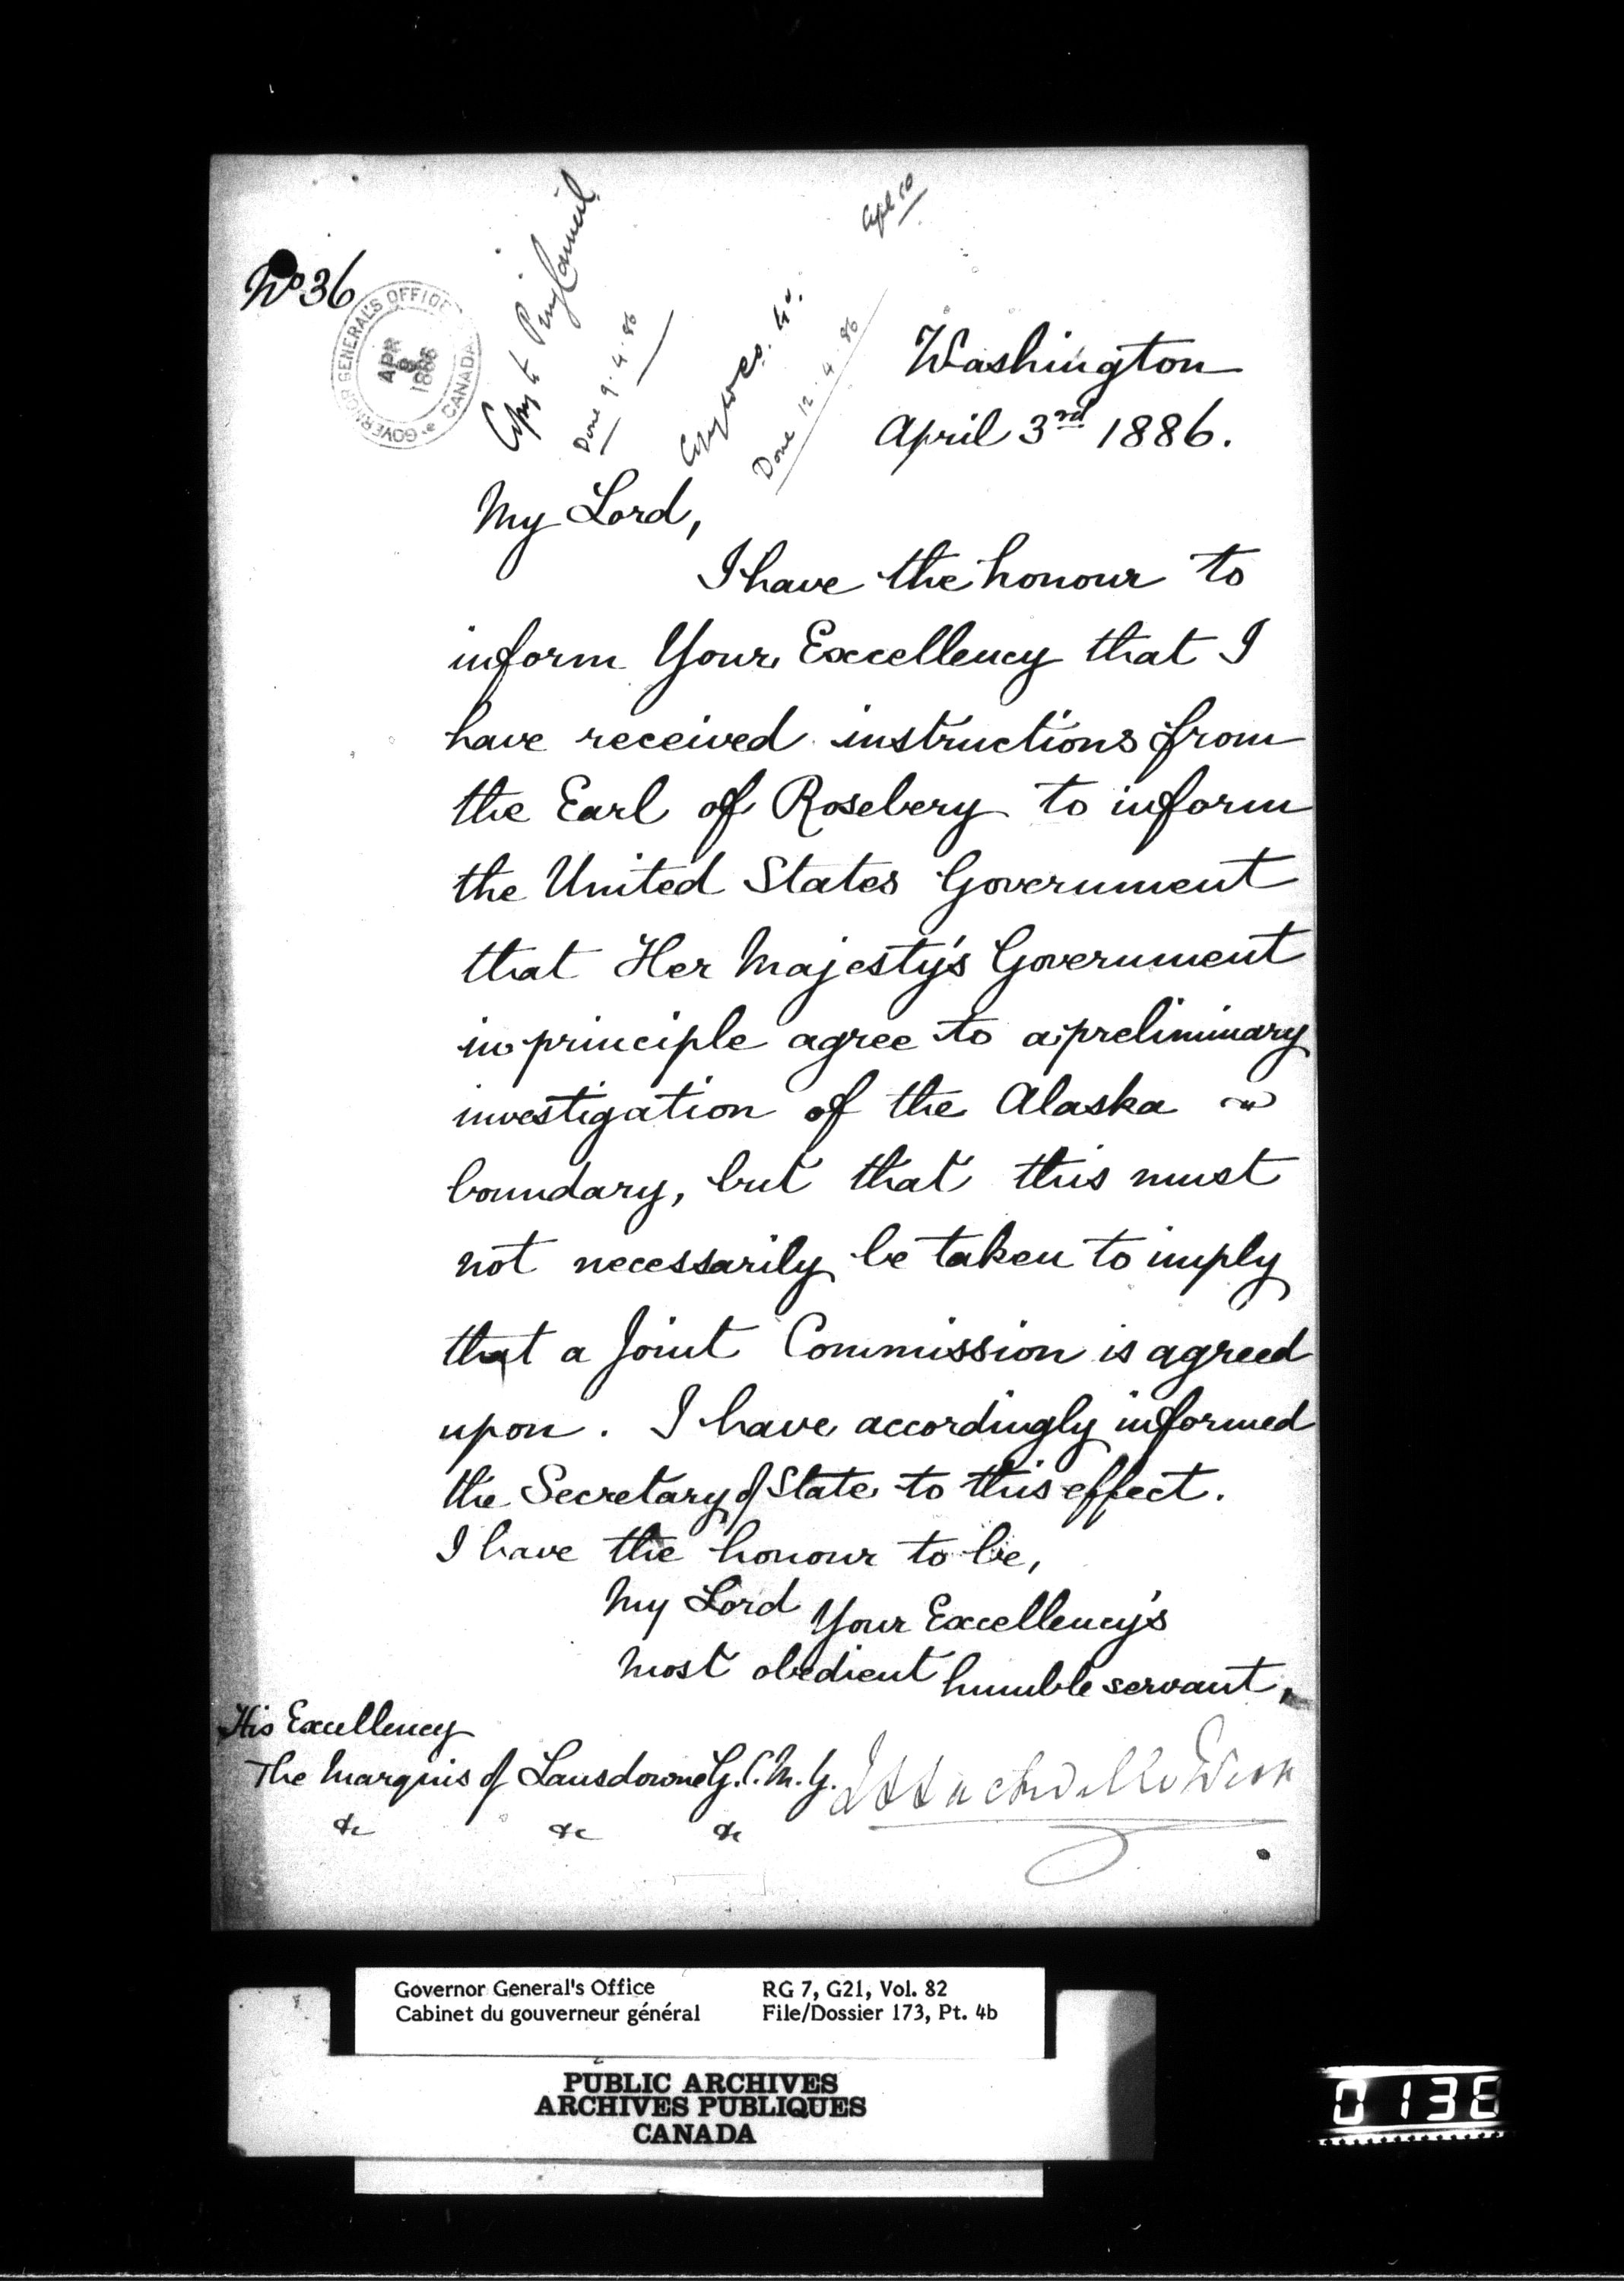 No 36
GOVERNOR GENERAL'S OFFICE
CANADA
APR
8
1886
Copy to Privy Council
Done 9.4.86
Copy to
Done 12.4.86
Washington
April 3rd 1886.
My Lord,
I have the honour to
inform Your Excellency that I
have received instructions from
the Earl of Rosebery to inform
the United States Government
that Her Majesty's Government
in principle agree to a preliminary
investigation of the Alaska
boundary, but that this must
not necessarily be taken to imply
that a Joint Commission is agreed
upon. I have accordingly informed
the Secretary of State to this effect.
I have the honour to be,
My Lord
Your Excellency's
most obedient humble servant,
His Excellency
The Marquis of Lansdowne G.C.M.G.
L S Sackville West
&c &c &c
Governor General's Office
Cabinet du gouverneur général
RG 7, G21, Vol. 82
File/Dossier 173, Pt. 4b
PUBLIC ARCHIVES
ARCHIVES PUBLIQUES
CANADA